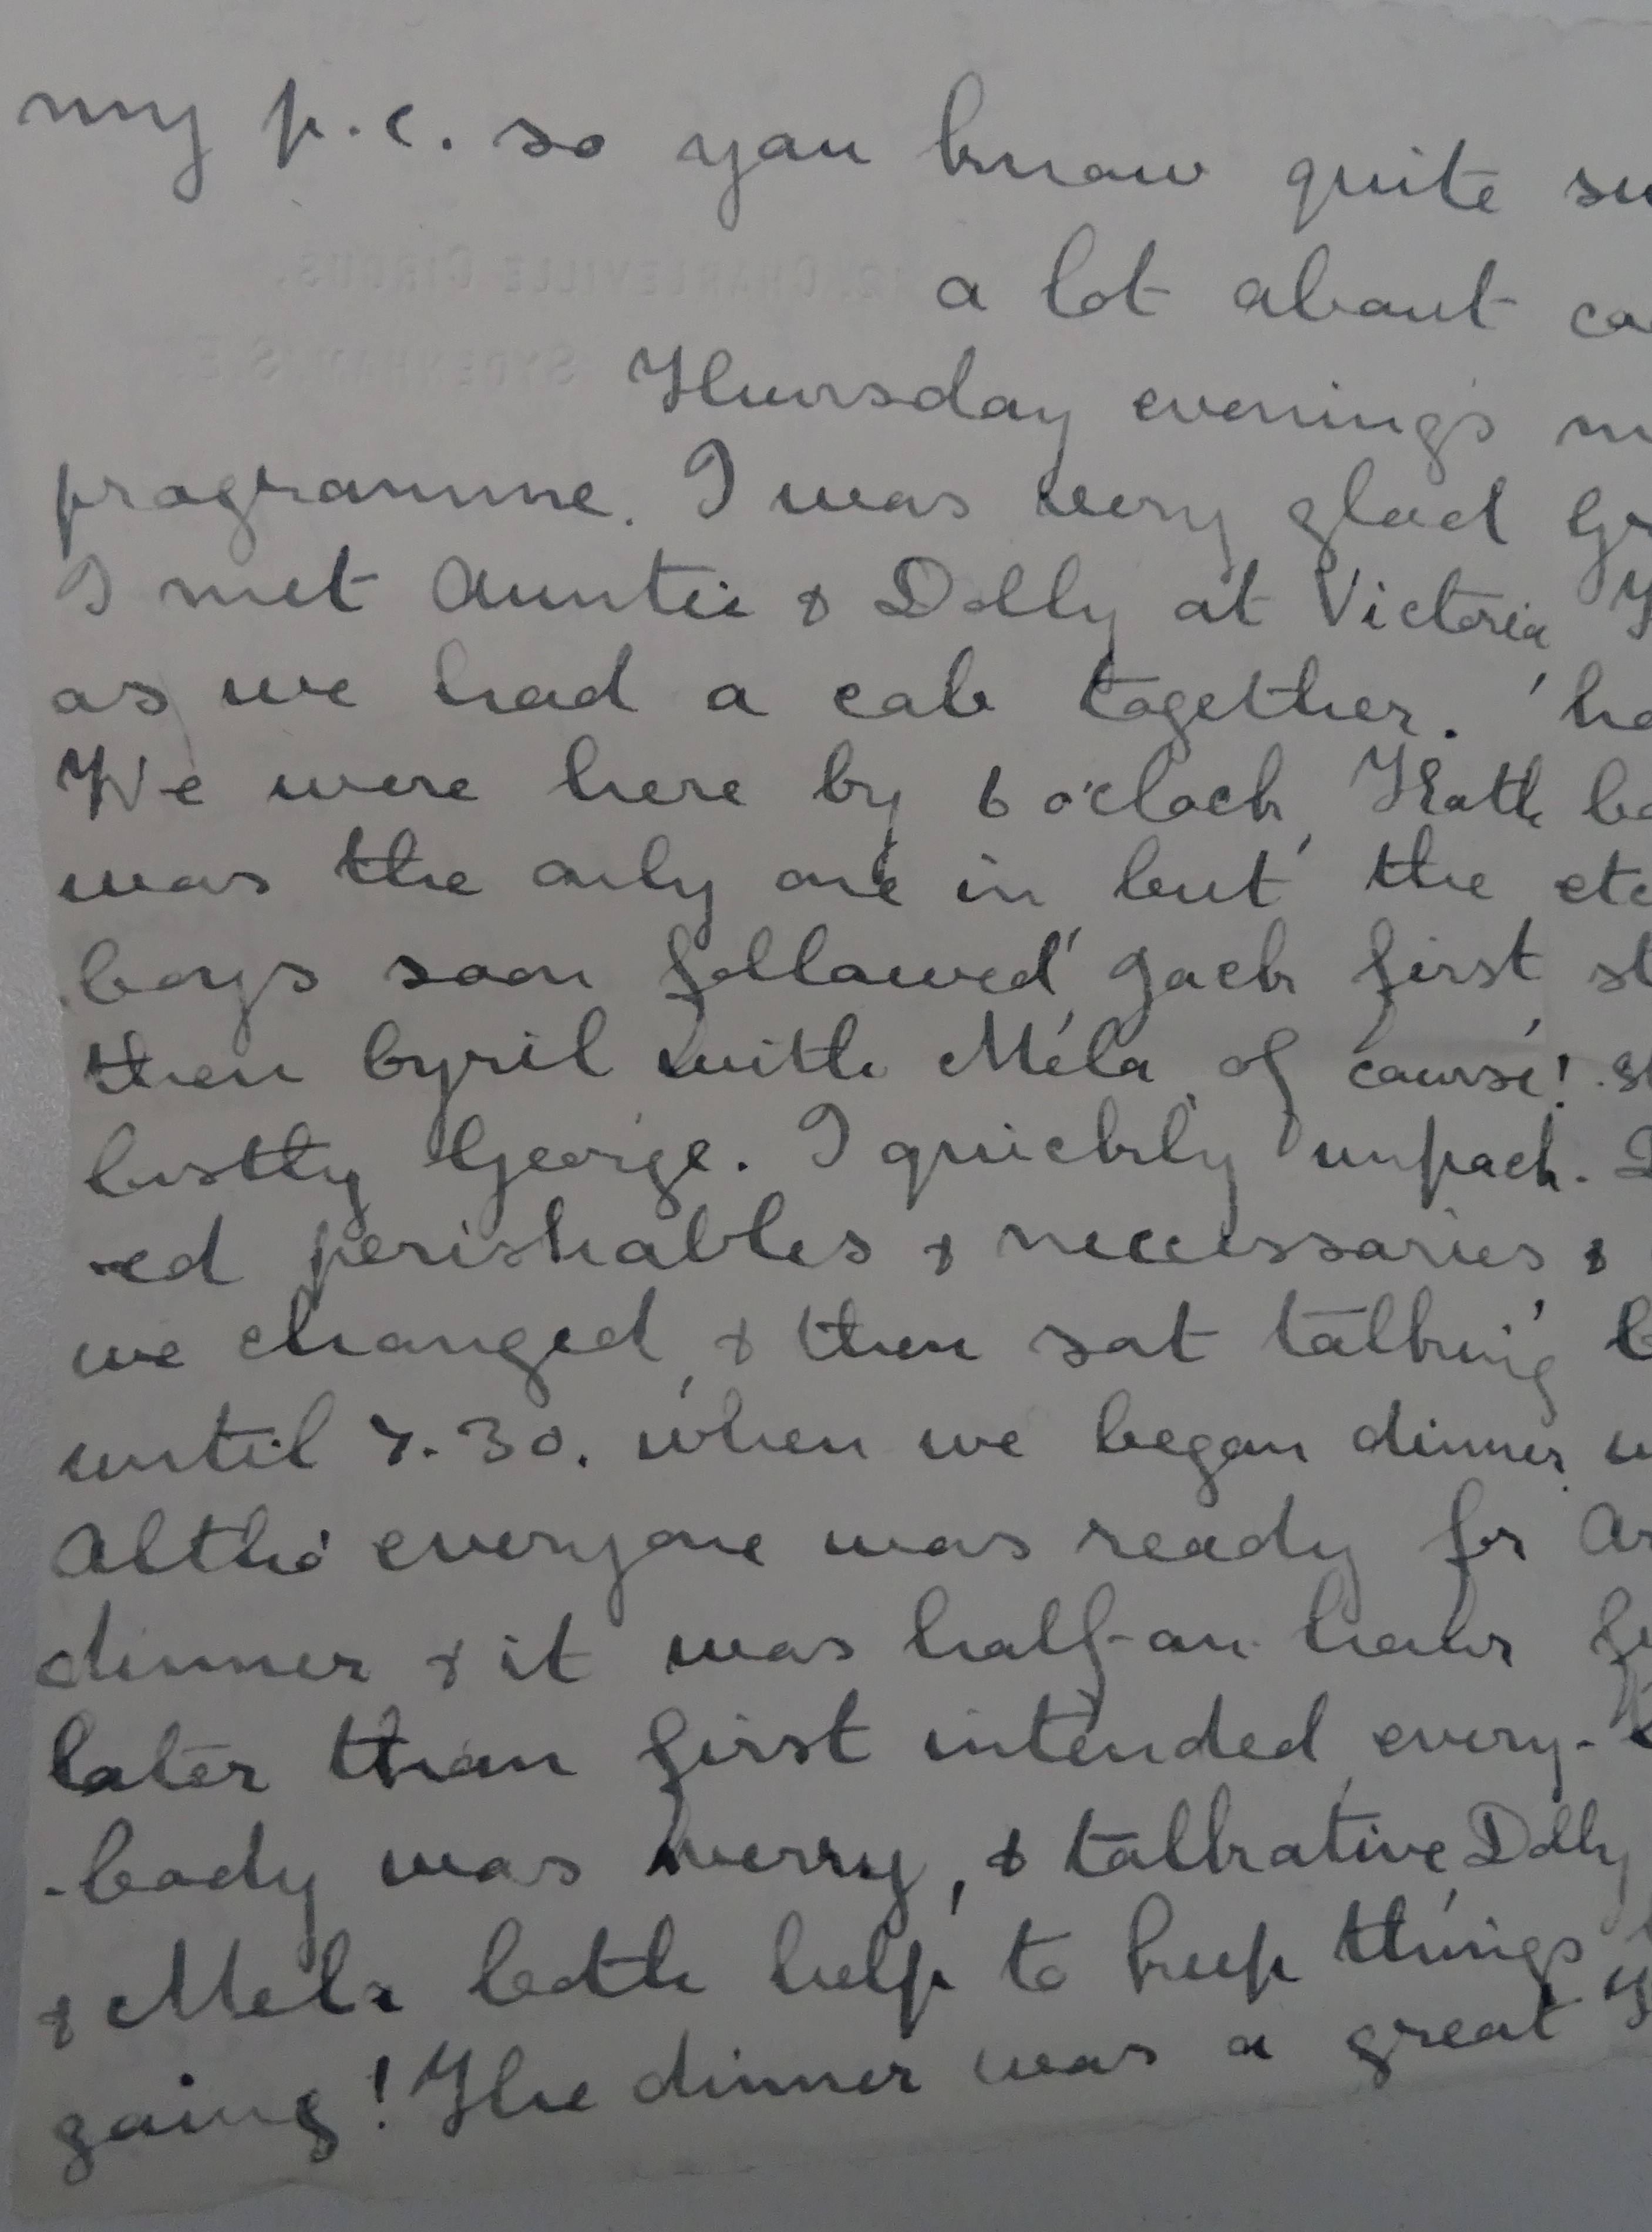 my p.c. so you know quite su
a lot about ca
Thursday evening's m
programme. I was very glad Gr
I met Auntie & Dolly at Victoria
as we had a cab together. ha
We were here by 6 o'clock, Kath ba
was the only one in but the etc
boys soon followed, Jack first st
then Cyril with Méla, of course! st
lastly George. I quickly unpack- D
-ed perishables & necessaries &
we changed, & then sat talking
until 7.30. when we began dinner. w
Altho' everyone was ready for Ar
dinner & it was half-an-hour fu
later than first intended, every-
-body was merry, & talkative, Dolly
& Mela both help to keep things
going! The dinner was a great